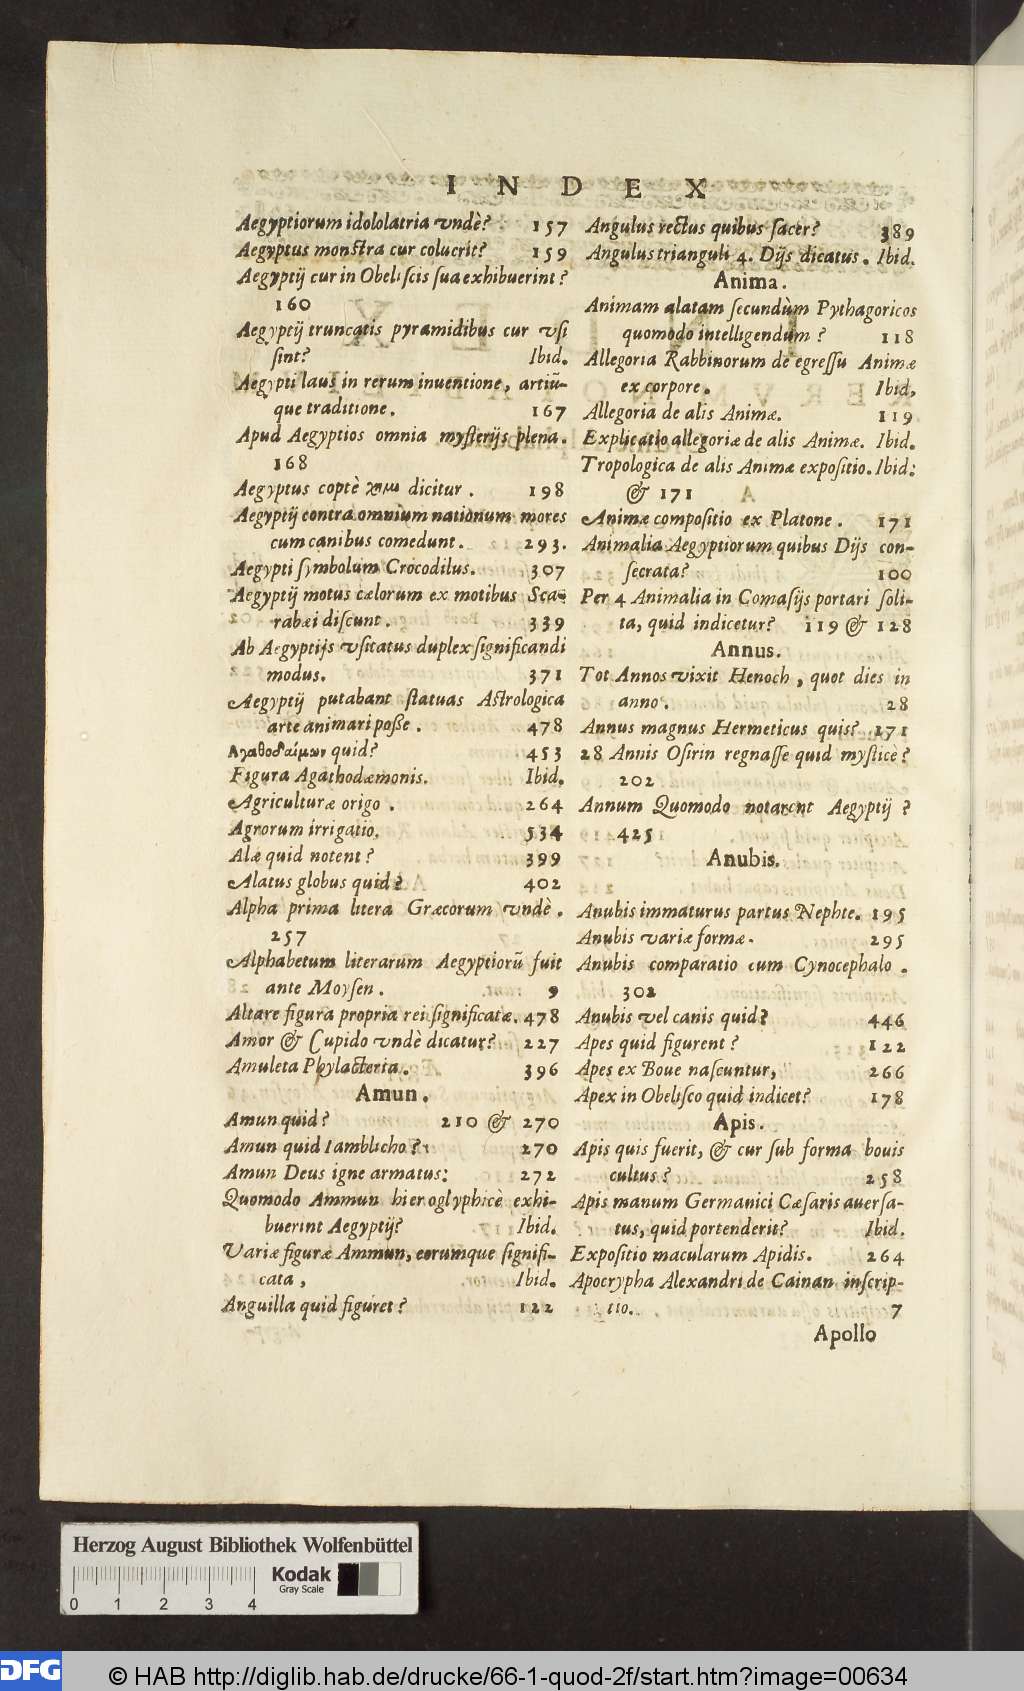 INDEX
Aegyptiorum idololatria vndè? 157
Aegyptus monstra cur coluerit? 159
Aegyptij cur in Obeliscis sua exhibuerint?
160
Aegyptij truncatis pyramidibus cur vsi
sint? Ibid.
Aegypti laus in rerum inuentione, artiū-
que traditione. 167
Apud Aegyptios omnia mysterijs plena.
168
Aegyptus coptè dicitur. 198
Aegyptij contra omnium nationum mores
cum canibus comedunt. 293.
Aegypti symbolum Crocodilus. 307
Aegyptij motus cælorum ex motibus Sca-
rabæi discunt. 339
Ab Aegyptijs vsitatus duplex significandi
modus. 371
Aegyptij putabant statuas Astrologica
arte animari poße. 478
Αγαθοδαίμων quid? 453
Figura Agathodæmonis. Ibid.
Agriculturæ origo. 264
Agrorum irrigatio. 534
Alæ quid notent? 399
Alatus globus quid? 402
Alpha prima litera Græcorum vndè.
257
Alphabetum literarum Aegyptiorū fuit
ante Moysen. 9
Altare figura propria rei significatæ. 478
Amor & Cupido vndè dicatur? 227
Amuleta Phylacteria. 396
Amun.
Amun quid? 210 & 270
Amun quid Iamblicho? 270
Amun Deus igne armatus: 272
Quomodo Ammun hieroglyphicè exhi-
buerint Aegyptij? Ibid.
Variæ figuræ Ammun, eorumque signifi-
cata, Ibid.
Anguilla quid figuret? 122
Angulus rectus quibus sacer? 389
Angulus trianguli 4. Dijs dicatus. Ibid.
Anima.
Animam alatam secundùm Pythagoricos
quomodo intelligendum? 118
Allegoria Rabbinorum de egressu Animæ
ex corpore. Ibid,
Allegoria de alis Animæ. 119
Explicatio allegoriæ de alis Animæ. Ibid.
Tropologica de alis Animæ expositio. Ibid:
& 171
Animæ compositio ex Platone. 171
Animalia Aegyptiorum quibus Dijs con-
secrata? 100
Per 4 Animalia in Comasijs portari soli-
ta, quid indicetur? 119 & 128
Annus.
Tot Annos vixit Henoch, quot dies in
anno. 28
Annus magnus Hermeticus quis? 271
28 Annis Osirin regnasse quid mysticè?
202
Annum Quomodo notarent Aegyptij?
425
Anubis.
Anubis immaturus partus Nephte. 195
Anubis variæ formæ. 295
Anubis comparatio cum Cynocephalo.
302
Anubis vel canis quid? 446
Apes quid figurent? 122
Apes ex Boue nascuntur, 266
Apex in Obelisco quid indicet? 178
Apis.
Apis quis fuerit, & cur sub forma bouis
cultus? 258
Apis manum Germanici Cæsaris auersa-
tus, quid portenderit? Ibid.
Expositio macularum Apidis. 264
Apocrypha Alexandri de Cainan inscrip-
tio. 7
Apollo
Herzog August Bibliothek Wolfenbüttel
Kodak
Gray Scale
0 1 2 3 4
DFG
© HAB http://diglib.hab.de/drucke/66-1-quod-2f/start.htm?image=00634